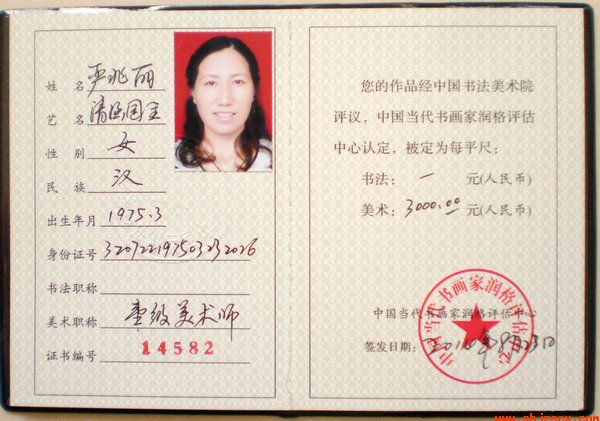 姓 名 严兆丽
艺 名
性 别 女
民 族 汉
出生年月 1975.3
身份证号 320722197503232026
书法职称
美术职称 壹级美术师
证书编号 14582
您的作品经中国书法美术院
评议，中国当代书画家润格评估
中心认定，被定为每平尺：
书法： — 元(人民币)
美术： 3000.00 元(人民币)
中国当代书画家润格评估中心
签发日期： 2010年8月23日
中国当代书画家润格评估中心